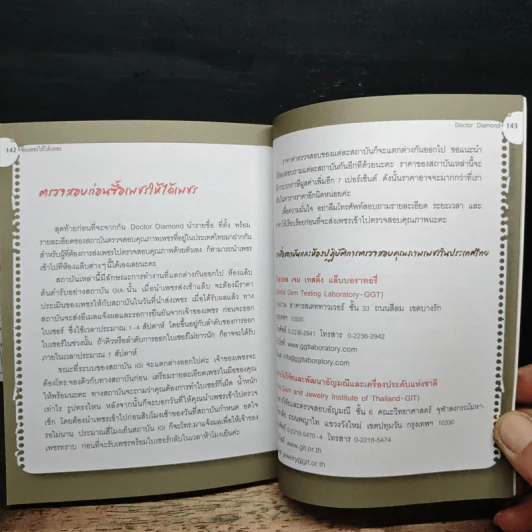 142
ตรวจสอบก่อนซื้อเพชรให้ได้เพชร
สุดท้ายก่อนที่จะจากกัน Doctor Diamond นำรายชื่อ ที่ตั้ง พร้อม
รายละเอียดของสถาบันตรวจสอบคุณภาพเพชรที่อยู่ในประเทศไทยมาฝากกัน
สำหรับผู้ที่ต้องการส่งเพชรไปตรวจสอบคุณภาพด้วยตัวเอง ก็สามารถนำเพชร
เข้าไปที่ห้องแล็บต่างๆ นี้ได้เองเลยนะคะ
สถาบันเหล่านี้มีลักษณะการทำงานที่แตกต่างกันออกไป ห้องแล็บ
ต้นตำรับอย่างสถาบัน GIA นั้น เมื่อนำเพชรส่งเข้าแล็บ จะต้องมีราคา
ประเมินของเพชรให้กับสถาบันในวันที่นำส่งเพชร เมื่อได้รับผลแล้ว ทาง
สถาบันจะส่งอีเมลแจ้งผลและรอการยืนยันจากเจ้าของเพชร ก่อนจะออก
ใบเซอร์ ซึ่งใช้เวลาประมาณ 1-4 สัปดาห์ โดยขึ้นอยู่กับลำดับของการออก
ใบเซอร์ในช่วงนั้น ถ้าคิวหรือลำดับการออกใบเซอร์ไม่ยาวนัก ก็อาจจะได้รับ
ภายในเวลาประมาณ 1 สัปดาห์
ขณะที่ระบบของสถาบัน IGI จะแตกต่างออกไปค่ะ เจ้าของเพชรจะ
ต้องโทร.จองคิวกับทางสถาบันก่อน เตรียมรายละเอียดเพชรในมือของคุณ
ให้พร้อมนะคะ ทางสถาบันจะถามว่าคุณต้องการทำใบเซอร์กี่เม็ด น้ำหนัก
เท่าไร รูปทรงไหน หลังจากนั้นก็จะบอกวันที่ให้คุณนำเพชรเข้าไปตรวจ
เช็ก โดยต้องนำเพชรเข้าไปก่อนสิบโมงเช้าของวันที่สถาบันกำหนด อดใจ
รอไม่นาน ประมาณสี่โมงเย็นสถาบัน IGI ก็จะโทร.มาแจ้งผลเพื่อให้เจ้าของ
เพชรทราบ ก่อนที่จะรับเพชรพร้อมใบเซอร์กลับในเวลาห้าโมงเย็นค่ะ
Doctor Diamond 143
ราคาค่าตรวจสอบของแต่ละสถาบันก็จะแตกต่างกันออกไป ขอแนะนำ
ให้สอบถามแต่ละสถาบันกันอีกทีด้วยนะคะ ราคาของสถาบันเหล่านี้จะ
ภาษีมูลค่าเพิ่มอีก 7 เปอร์เซ็นต์ ดังนั้นราคาอาจจะมากกว่าที่เรา
ราคาอีกนิดหน่อยค่ะ
เพื่อความมั่นใจ อย่าลืมโทรศัพท์สอบถามรายละเอียด ระยะเวลา และ
ให้เรียบร้อยก่อนที่จะส่งเพชรเข้าไปตรวจสอบคุณภาพนะคะ
ห้องปฏิบัติการตรวจสอบคุณภาพเพชรในประเทศไทย
เจม เทสติ้ง แล็บบอราทอรี่
Gem Testing Laboratory-GGT)
อาคารสเตททาวเวอร์ ชั้น 33 ถนนสีลม เขตบางรัก
10500
0-2236-2941 โทรสาร 0-2236-2942
www.ggtlaboratory.com
info@ggtlaboratory.com
วิจัยและพัฒนาอัญมณีและเครื่องประดับแห่งชาติ
Gem and Jewelry Institute of Thailand-GIT)
ตรวจสอบอัญมณี ชั้น 6 คณะวิทยาศาสตร์ จุฬาลงกรณ์มหา-
ถนนพญาไท แขวงวังใหม่ เขตปทุมวัน กรุงเทพฯ 10330
0-2218-5470-4 โทรสาร 0-2218-5474
www.git.or.th
jewelry@git.or.th